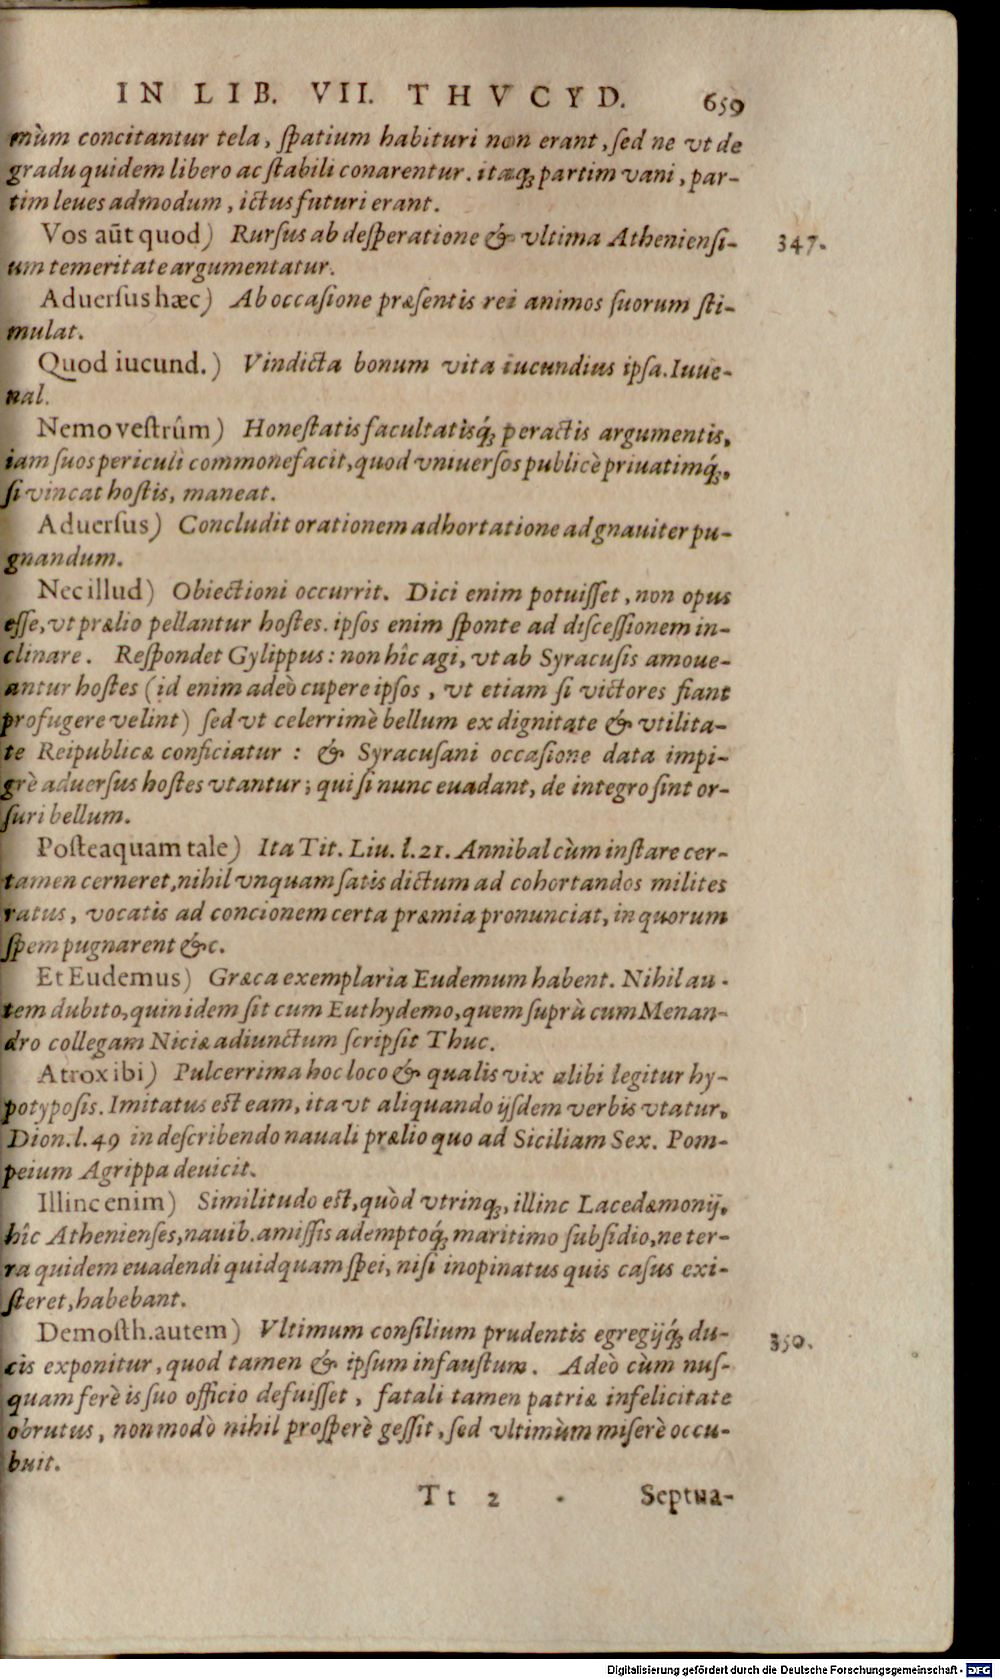 IN LIB. VII. THVCYD. 659
mùm concitantur tela, ſpatium habituri non erant, ſed ne vt de
gradu quidem libero ac ſtabili conarentur. itaq́; partim vani, par-
tim leues admodum, ictus futuri erant.
Vos aūt quod) Rurſus ab deſperatione & vltima Athenienſi- 347.
um temeritate argumentatur.
Aduerſus hæc) Ab occaſione præſentis rei animos ſuorum ſti-
mulat.
Quod iucund.) Vindicta bonum vita iucundius ipſa. Iuue-
nal.
Nemo veſtrûm) Honeſtatis facultatisq́; peractis argumentis,
iam ſuos periculi commonefacit, quod vniuerſos publicè priuatimq́;,
ſi vincat hoſtis, maneat.
Aduerſus) Concludit orationem adhortatione ad gnauiter pu-
gnandum.
Nec illud) Obiectioni occurrit. Dici enim potuiſſet, non opus
eſſe, vt prælio pellantur hoſtes. ipſos enim ſponte ad diſceſſionem in-
clinare. Reſpondet Gylippus: non hîc agi, vt ab Syracuſis amoue-
antur hoſtes (id enim adeò cupere ipſos, vt etiam ſi victores fiant
profugere velint) ſed vt celerrimè bellum ex dignitate & vtilita-
te Reipublicæ conficiatur: & Syracuſani occaſione data impi-
grè aduerſus hoſtes vtantur; qui ſi nunc euadant, de integro ſint or-
ſuri bellum.
Poſteaquam tale) Ita Tit. Liu. l. 21. Annibal cùm inſtare cer-
tamen cerneret, nihil vnquam ſatis dictum ad cohortandos milites
ratus, vocatis ad concionem certa præmia pronunciat, in quorum
ſpem pugnarent &c.
Et Eudemus) Græca exemplaria Eudemum habent. Nihil au-
tem dubito, quin idem ſit cum Euthydemo, quem ſuprà cum Menan-
dro collegam Niciæ adiunctum ſcripſit Thuc.
Atrox ibi) Pulcerrima hoc loco & qualis vix alibi legitur hy-
potypoſis. Imitatus eſt eam, ita vt aliquando ijſdem verbis vtatur,
Dion. l. 49 in deſcribendo nauali prælio quo ad Siciliam Sex. Pom-
peium Agrippa deuicit.
Illinc enim) Similitudo eſt, quòd vtrinq;, illinc Lacedæmonij,
hîc Athenienſes, nauib. amiſſis ademptoq́; maritimo ſubſidio, ne ter-
ra quidem euadendi quidquam ſpei, niſi inopinatus quis caſus exi-
ſteret, habebant.
Demoſth. autem) Vltimum conſilium prudentis egregijq́; du- 350.
cis exponitur, quod tamen & ipſum infauſtum. Adeò cùm nuſ-
quam ferè is ſuo officio defuiſſet, fatali tamen patriæ infelicitate
obrutus, non modò nihil proſperè geſſit, ſed vltimùm miſerè occu-
buit.
Tt 2 Septua-
Digitalisierung gefördert durch die Deutsche Forschungsgemeinschaft - DFG